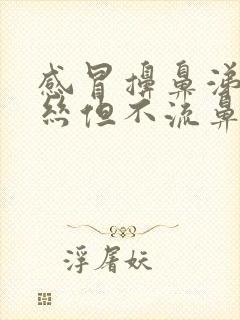 感冒擤鼻涕
丝但不流鼻
浮屠妖